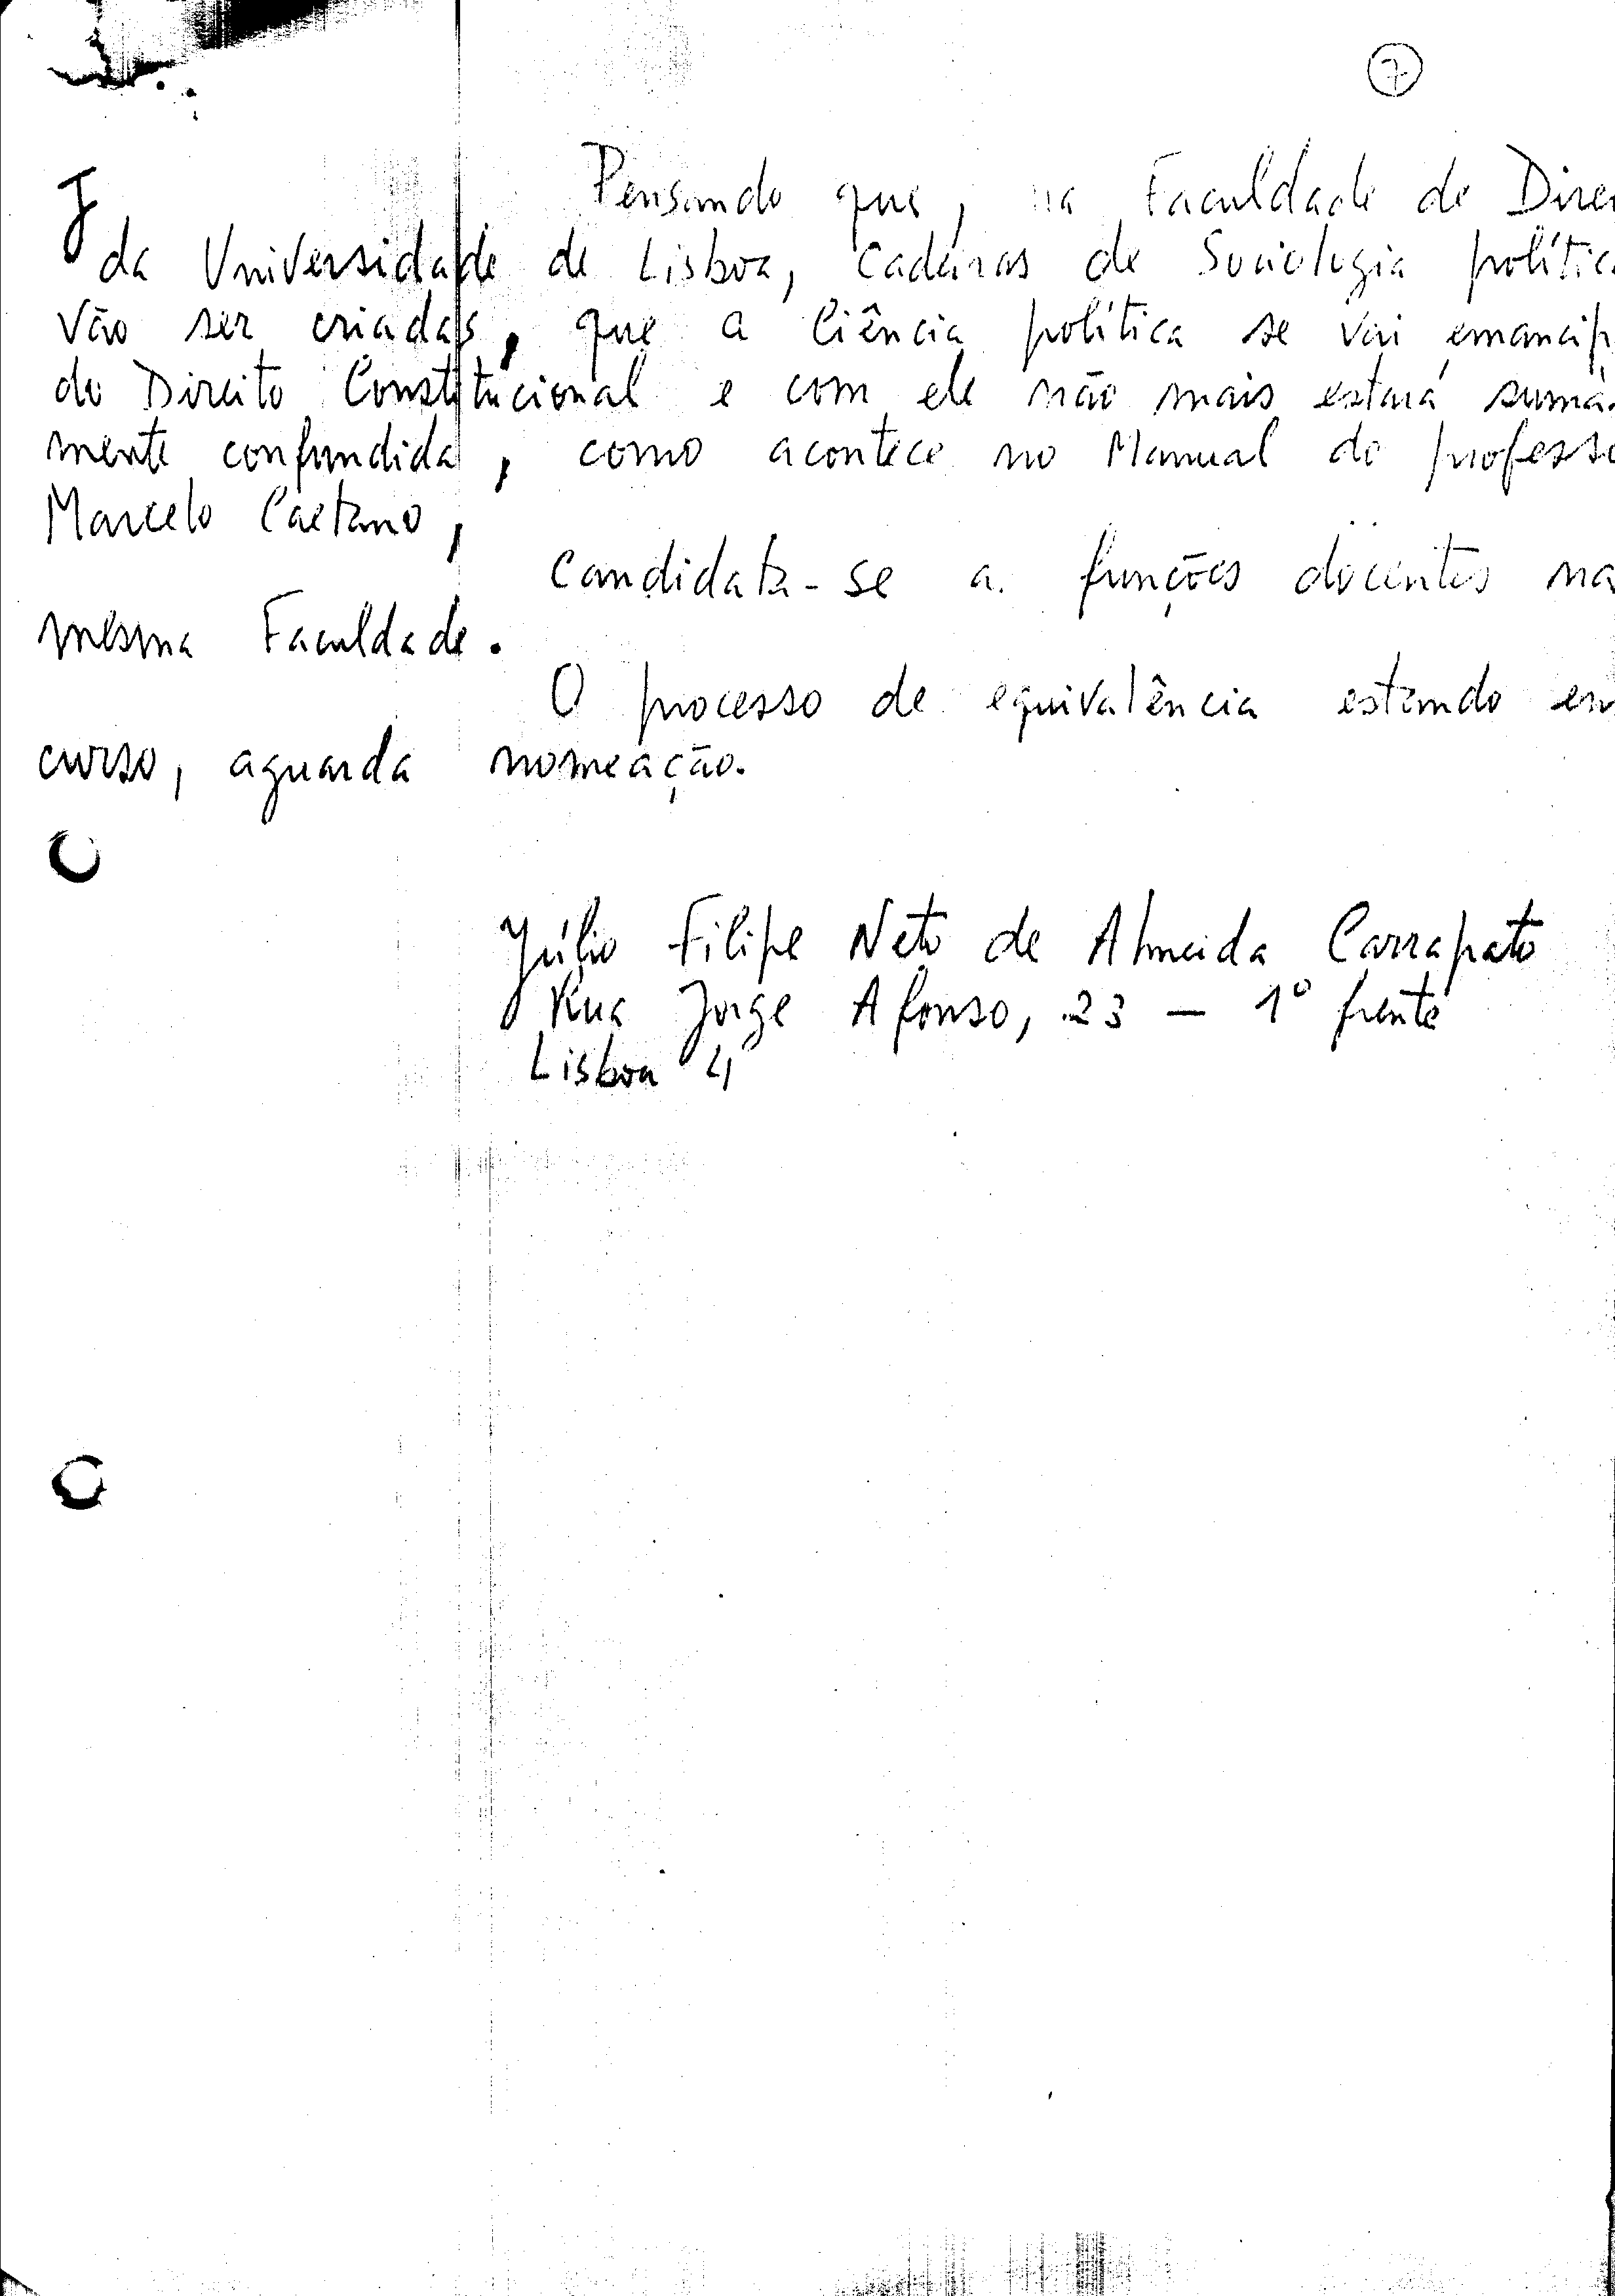 7
J
Pensando que, na Faculdade de Direi
da Universidade de Lisboa, cadeiras de Sociologia polític
vão ser criadas, que a Ciência política se vai emancip
do Direito Constitucional e com ele não mais estará sumá
mente confundida, como acontece no Manual do professo
Marcelo Caetano,
candidata-se a funções docentes na
mesma Faculdade.
O processo de equivalência estando em
curso, aguarda nomeação.
Júlio Filipe Neto de Almeida Carrapato
Rua Jorge Afonso, 23 – 1º frente
Lisboa 4